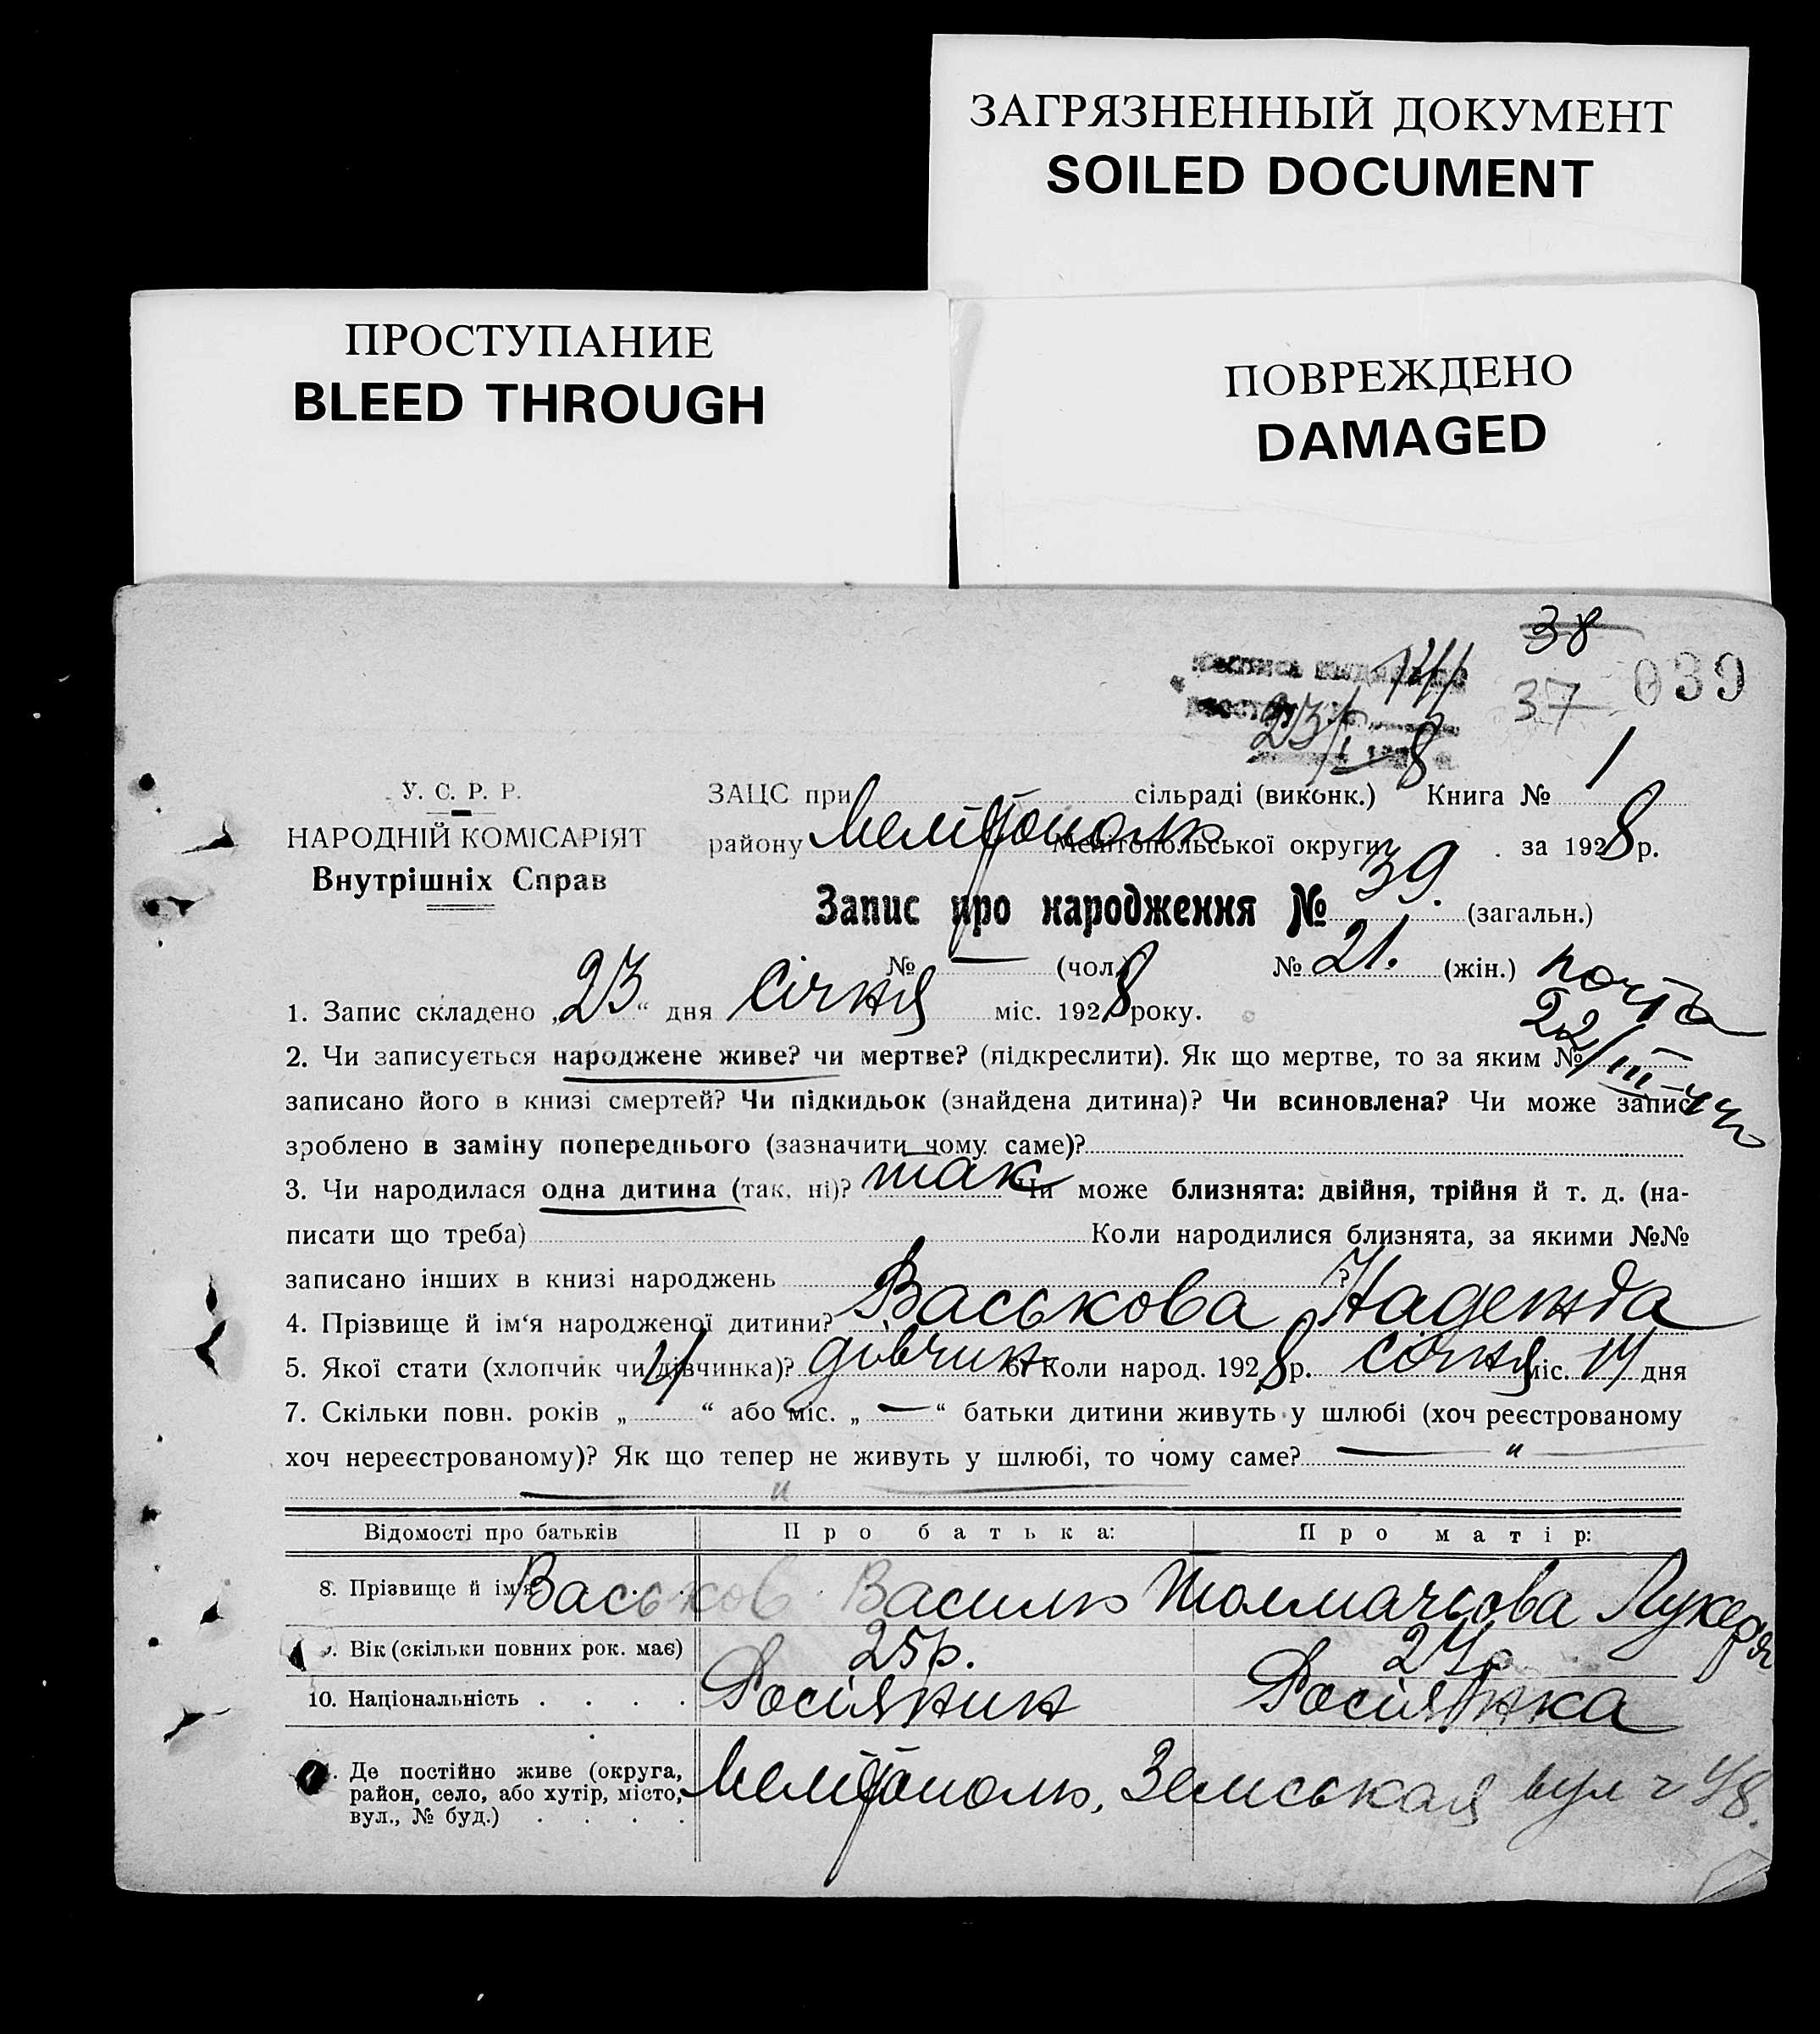 ЗАГРЯЗНЕННЫЙ ДОКУМЕНТ
SOILED DOCUMENT
ПРОСТУПАНИЕ
BLEED THROUGH
ПОВРЕЖДЕНО
DAMAGED
38
37 039
23/I 8
У. С. Р. Р.
НАРОДНІЙ КОМІСАРІЯТ
Внутрішніх Справ
ЗАЦС при сільраді (виконк.) Книга № 1
району Мелітополь Мелітопольської округи . за 1928 р.
Запис про народження № 39. (загальн.)
№ — (чол.) № 21. (жін.)
1. Запис складено „23“ дня січня міс. 1928 року.
22/III
2. Чи записується народжене живе? чи мертве? (підкреслити). Як що мертве, то за яким №
записано його в книзі смертей? Чи підкидьок (знайдена дитина)? Чи всиновлена? Чи може запис
зроблено в заміну попереднього (зазначити чому саме)?
3. Чи народилася одна дитина (так, ні)? так Чи може близнята: двійня, трійня й т. д. (на-
писати що треба) Коли народилися близнята, за якими №№
записано інших в книзі народжень ?
4. Прізвище й ім‘я народженої дитини? Васькова Надежда
5. Якої стати (хлопчик чи дівчинка)? дівчин 6. Коли народ. 1928 р. січня міс. 14 дня
7. Скільки повн. років „ 4 “ або міс. „ — “ батьки дитини живуть у шлюбі (хоч реєстрованому
хоч нереєстрованому)? Як що тепер не живуть у шлюбі, то чому саме? — „ —
— „ —
Відомості про батьків Про батька: Про матір:
8. Прізвище й ім'я Васьков Василь Толмачьова Лукеря
9. Вік (скільки повних рок. має) 25р. 24р.
10. Національність . . . . Росіянин Росіянка
Де постійно живе (округа,
район, село, або хутір, місто, Мелітополь, Земськая вул ч 48.
вул., № буд.) . . . .